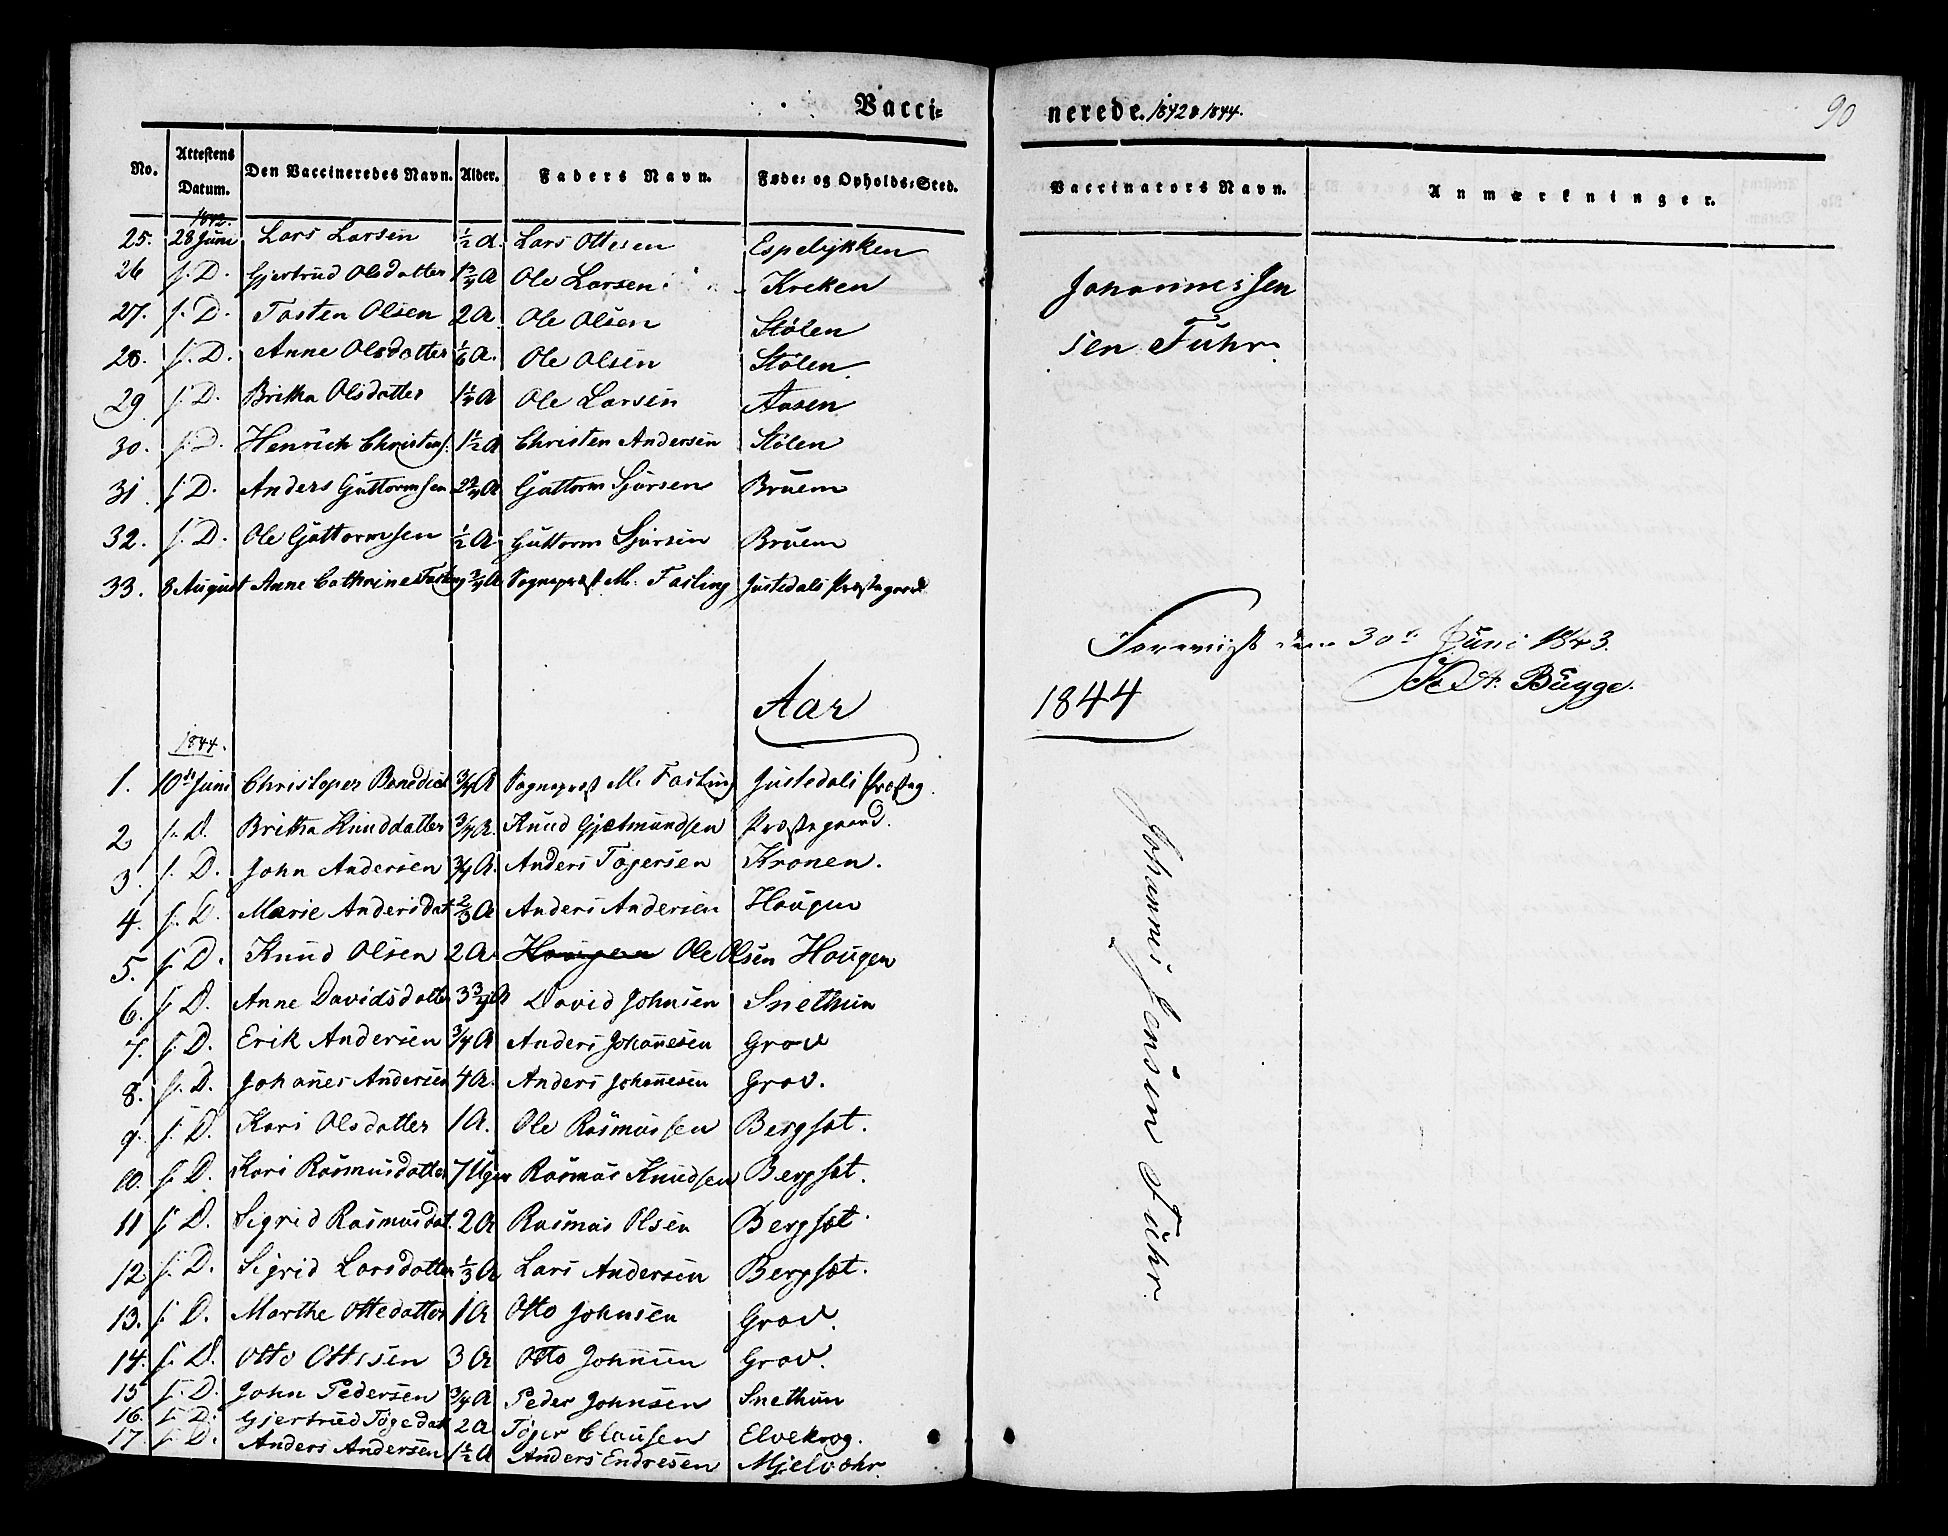 Vacci-
nerede. 1842 & 1844.
90
No. Attestens Datum. Den Vaccineredes Navn. Alder. Faders Navn. Føde- og Opholds-Sted. Vaccinators Navn. Anmærkninger.
1842.
25. 28 Juni Lars Larsen ½ A. Lars Ottesen Espelykken
26 s. D. Gjertrud Olsdatter A Ole Larsen Kreken
27. s. D. Tosten Olsen 2 A Ole Olsen Stølen
28. s. D. Anne Olsdatter 1/6 A. Ole Olsen Stølen
29 s. D. Britha Olsdatter A Ole Larsen Aasen
30. s. D. Henrich Christens. 1½ A Christen Andersen Stølen
31. s. D. Anders Guttormsen A Guttorm Sjursen Bruem
32. s. D. Ole Guttormsen ½ A Guttorm Sjursen Bruem
33. 8 August Anne Cathrine Fasting ¾ A Sognepræst M. Fasting Justedals Præstegaard
Johannes Jen
sen Fuhr
Foreviist den 30te Juni 1843.
Bugge.
Aar 1844
1844.
1. 10de Juni Christoper Benedict ¾ A Sognepræst M. Fasting Justedals Præsteg.
2 s. D. Britha Knuddatter ¾ A. Knud Gjetmundsen Præstegaard.
3. s. D. John Andersen ¾ A. Anders Tøgersen Kronen.
4. s. D. Marie Andersdat ⅔ A Anders Andersen Hougen
5. s. D. Knud Olsen 2 A Hougen Ole Olsen Hougen
6. s. D. Anne Davidsdatter 3¾ A David Johnsen Snethun
7. s. D. Erik Andersen ¾ A Anders Johañesen Grov
8. s. D. Johañes Andersen 4 A. Anders Johañesen Grov.
9. s. D. Kari Olsdatter 1 A. Ole Rasmussen Bergset.
10. s. D. Kari Rasmusdatter 7 Uger Rasmus Knudsen Bergset.
11 s. D. Sigrid Rasmusdat. 2 A Rasmus Olsen Bergset.
12 s. D. Sigrid Larsdatter ⅓ A Lars Andersen Bergset.
13. s. D. Marthe Ottedatter 1 A Otto Johnsen Grov.
14. s. D. Otto Ottesen 3 A Otto Johnsen Grov.
15 s. D. John Pedersen ¾ A Peder Johnsen Snethun
16. s. D. Gjertrud Tøgedat 2 A Tøger Clausen Elvekrog.
17. s. D. Anders Andersen 1½ A Anders Endresen Mjelvæhr.
Johannes Jensen Fuhr